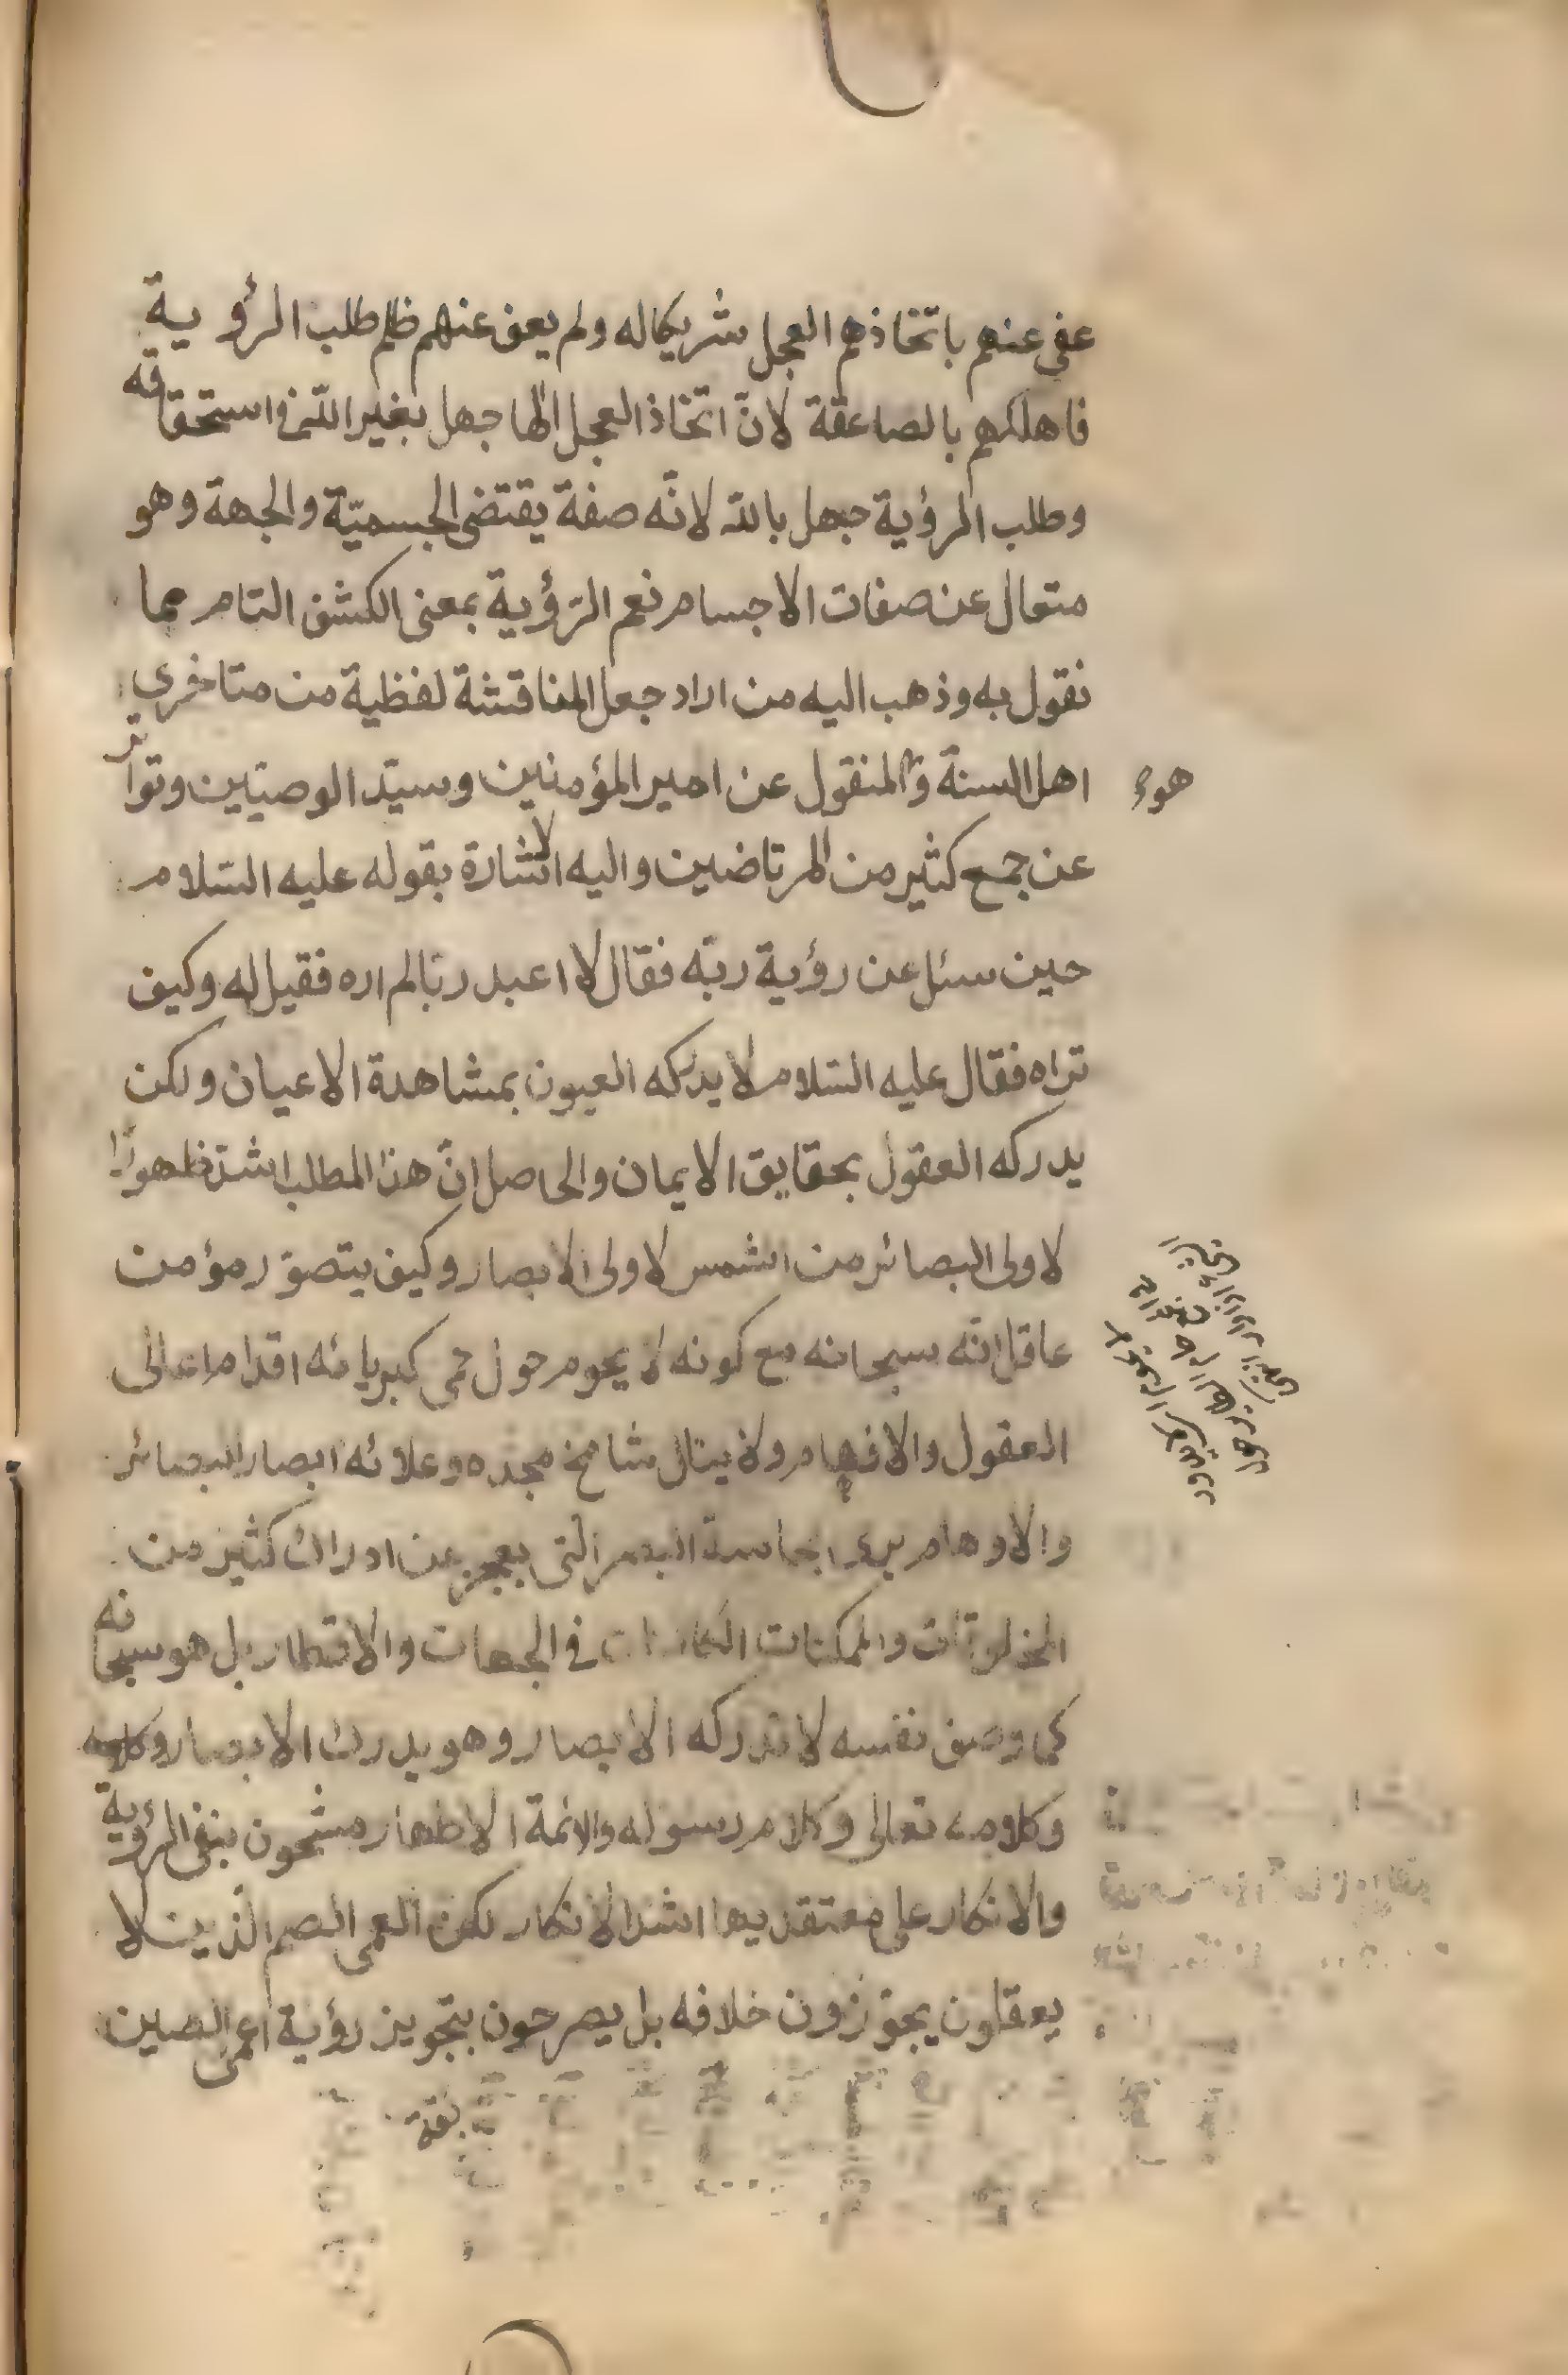 عفى عنهم باتخاذهم العجل شريكا له ولم يعف عنهم ظلم طلب الرؤية
فاهلكهم بالصاعقة لانّ اتخاذ العجل الٰها جهل بغير اللّه فى استحقاقه
وطلب الرؤية جهل بالله لانّه صفة يقتضى الجسميّة والجهة وهو
متعال عن صفات الاجسام نعم الرّؤية بمعنى الكشف التام مما
نقول به وذهب اليه من اراد جعل المناقشة لفظية من متاخرى
اهل السنة و المنقول عن امير المؤمنين وسيّد الوصيّين وتواتر
هو
عن جمع كثير من المرتاضين واليه الاشارة بقوله عليه السّلام
حين سئل عن رؤية ربّه فقال لا اعبد ربّا لم اره فقيل له وكيف
تراه فقال عليه السّلام لا يدركه العيون بمشاهدة الاعيان ولكن
يدركه العقول بحقايق الايمان والحاصل انّ هذا المطلب اشدّ ظهورًا
لاولى البصائر من الشمس لاولى الابصار وكيف يتصوّر مؤمن
عاقل انّه سبحانه مع كونه لا يحوم حول حمى كبريائه اقدام اعالى
العقول والافهام ولا ينال شامخ مجده وعلائه ابصار البصائر
والاوهام يرى بحاسة البصر التى يعجز عن ادراك كثير من
المخلوقات والممكنات الكائنات فى الجهات والاقطار بل هو سبحانه
كما وصف نفسه لا تدركه الابصار وهو يدرك الابصار
وكلامه تعالى وكلام رسوله والائمة الاطهار مشحون بنفى الرؤية
والانكار على معتقديها اشد الانكار لكن العمى الصم الّذين لا
يعقلون يجوّزون خلافه بل يصرحون بتجويز رؤية اعمى الصين
بقة